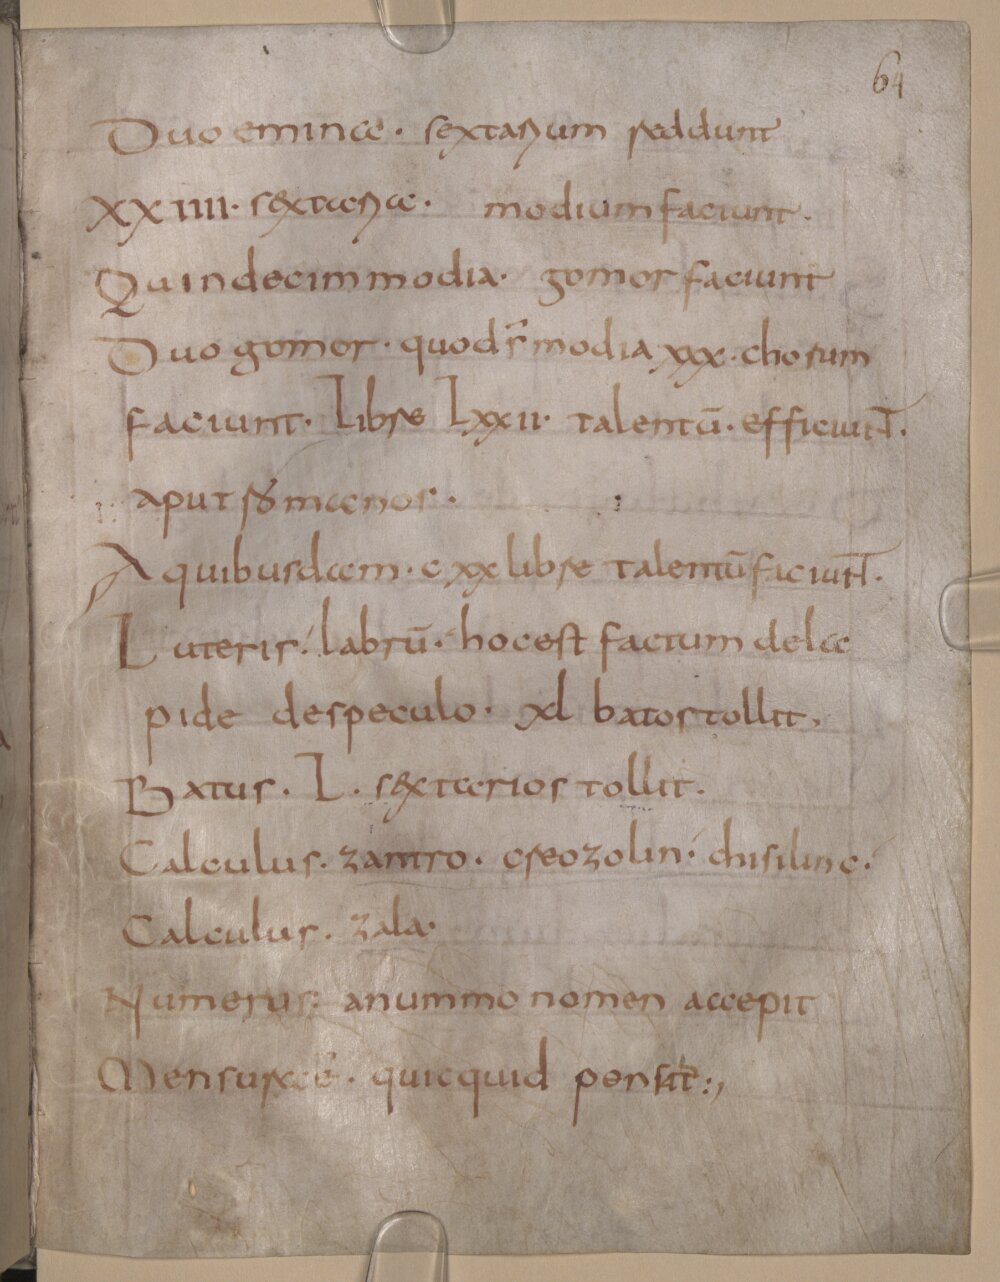 64
Duo eminae · sextarium reddunt
XXIIII · sextaria · modium faciunt ·
Quindecim modia · gomor faciunt
Duo gomor · quod s̄ modia xxx · chorum
faciunt · Librae Lxxii · talentū · efficiunt ·
aput romanos ·
A quibusdam · cxx librae talentū faciunt ·
Luteris · labrū · hoc est factum de la
pide de speculo · xl batos tollit ·
Batus · L · sextarios tollit ·
Calculus · zantro · creozolin · chisilinc ·
Calculus · zala ·
Numerus : a nummo nomen accepit
Mensura ē · quicquid pensat :,